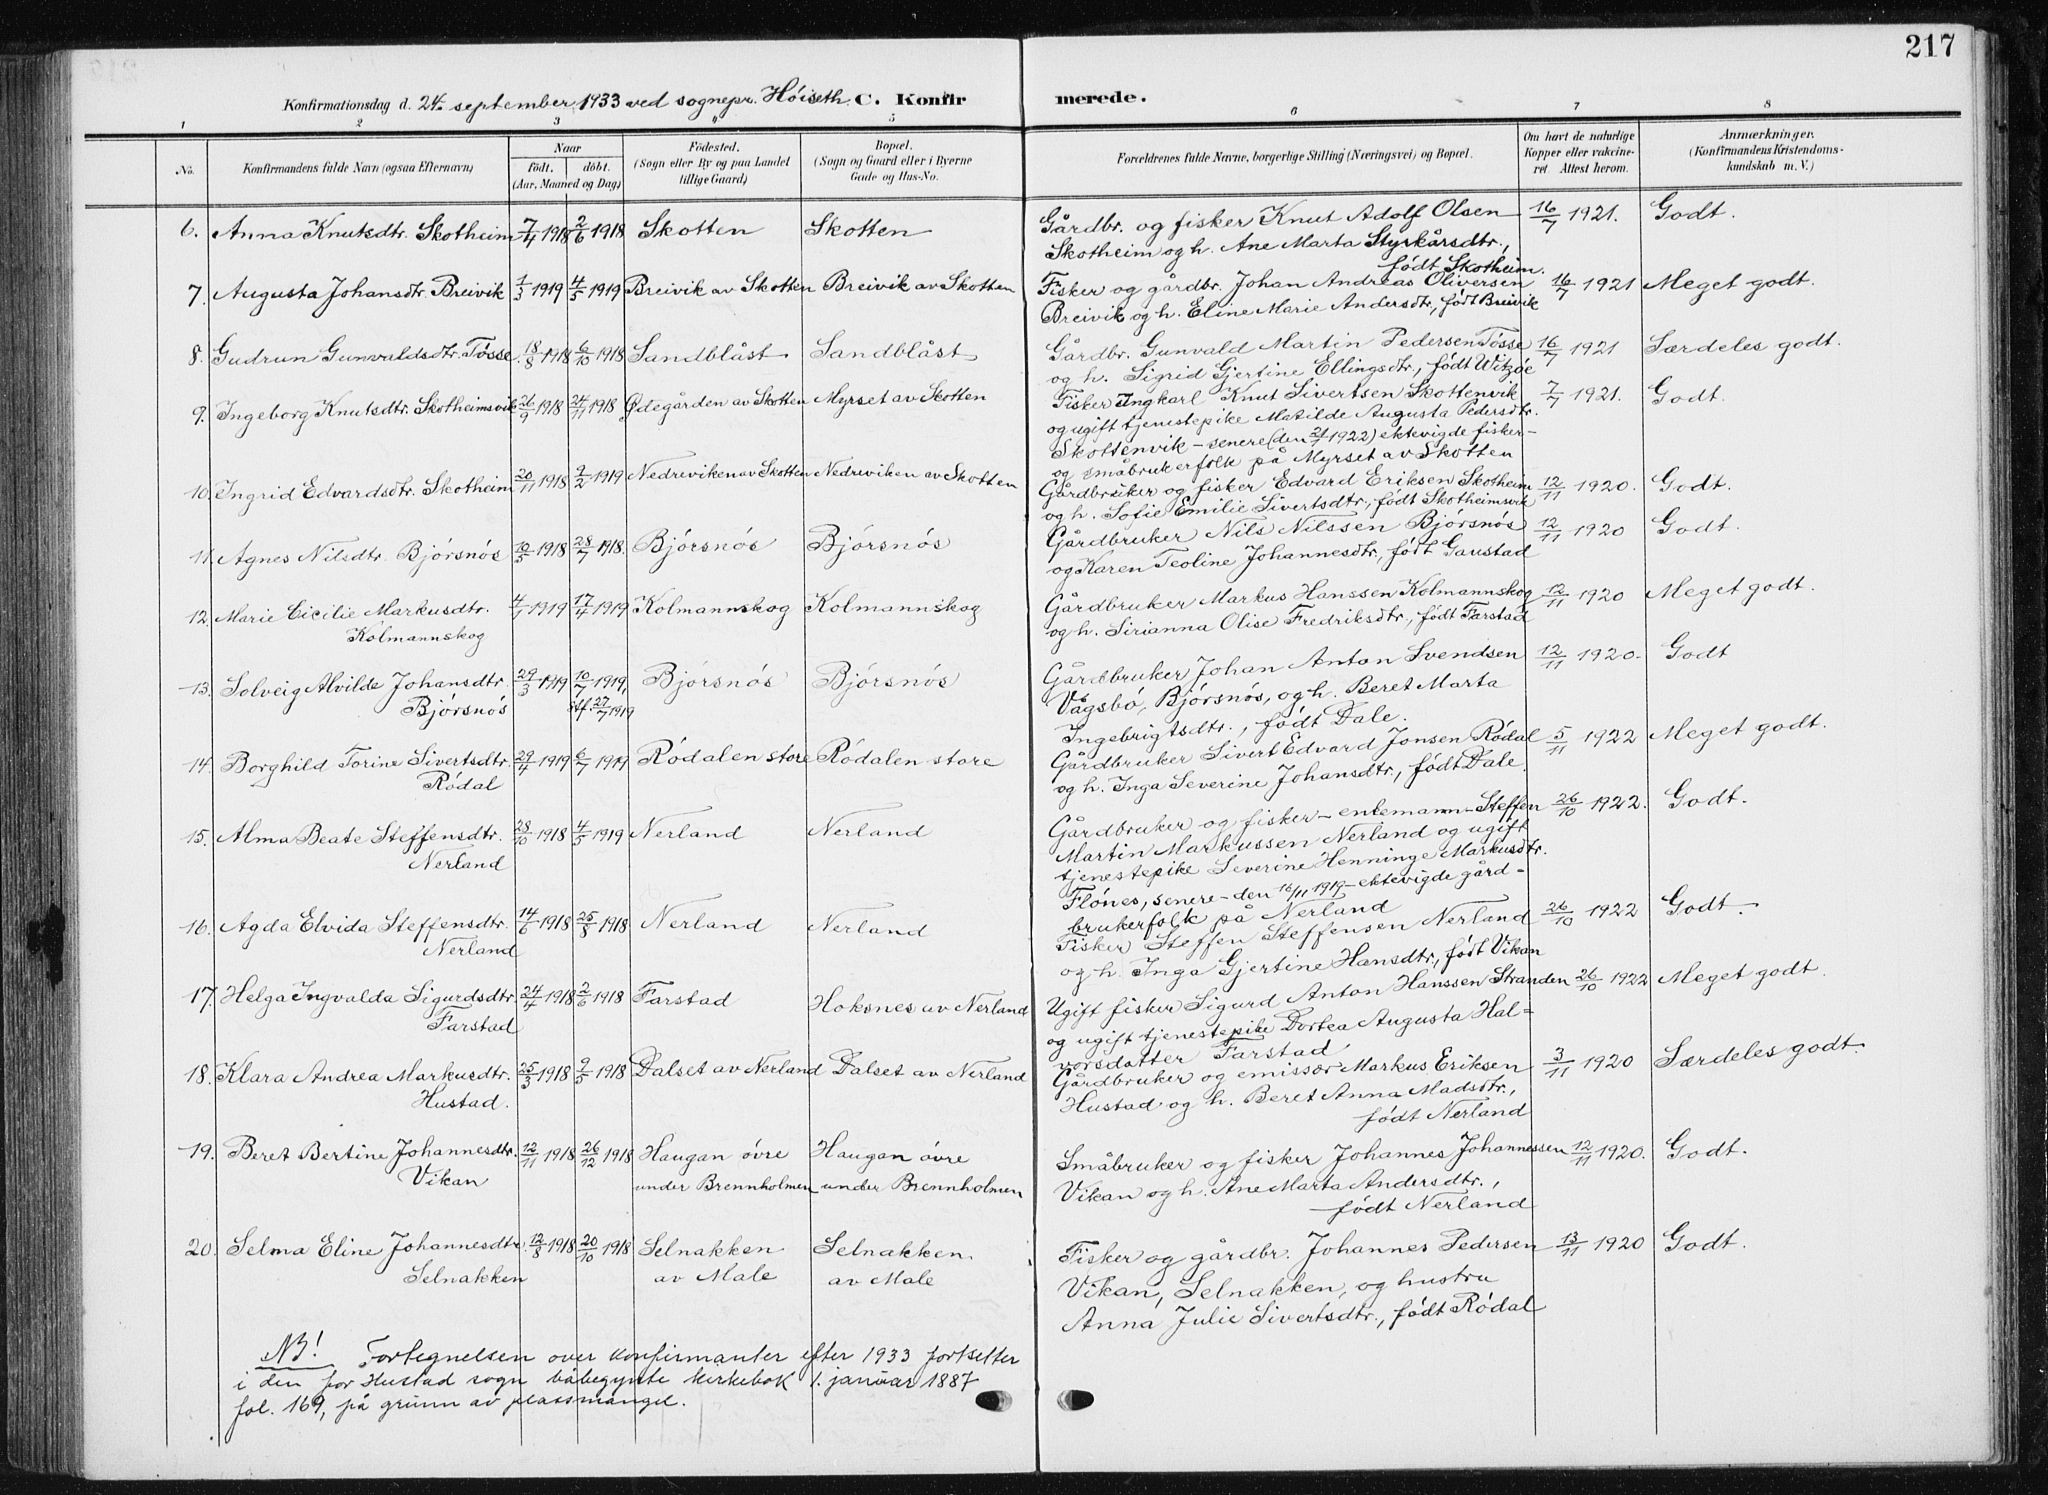 217
Konfirmationsdag d. 24. september 1933 ved sognepr. Höiseth. C. Konfirmerede.
1 2 3 4 5 6 7 8
No. Konfirmandens fulde Navn (ogsaa Efternavn) Naar födt. döbt. (Aar, Maaned og Dag) Födested. (Sogn eller By og paa Landet tillige Gaard) Bopæl. (Sogn og Gaard eller i Byerne Gade og Hus-No. Forældrenes fulde Navne, borgerlige Stilling (Næringsvei) og Bopæl. Om havt de naturlige Kopper eller vaccineret Attest herom. Anmærkninger. (Konfirmandens Kristendomskundskab m. V.)
6. Anna Knutsdtr. Skotheim 7/4 1918 2/6 1918 Skotten Skotten Gårdbr. og fisker Knut Adolf Olsen 16/7 1921. Godt.
Skotheim og h. Ane Marta Styrkårsdtr.,
født Skotheim.
7. Augusta Johansdtr. Breivik 1/3 1919 4/5 1919 Breivik av Skotten Breivik av Skotten Fisker og gårdbr. Johan Andreas Oliversen 16/7 1921 Meget godt.
Breivik og h. Eline Marie Andersdtr., født Breivik
8. Gudrun Gunvaldsdtr. Tösse 18/8 1918 6/10 1918 Sandblåst Sandblåst Gårdbr. Gunvald Martin Pedersen Tösse 16/7 1921 Særdeles godt.
og h. Sigrid Gjertine Ellingsdtr., født Witzöe
9. Ingeborg Knutsdtr. Skotheimsvik 26/9 1918 24/11 1918 Ødegården av Skotten Myrset av Skotten Fisker Ingkarl Knut Sivertsen Skottenvik 7/7 1921. Godt.
og ugift tjenestepike Matilde Augusta Pedersdtr.
Skottenvik – senere (den 21/1 1922) ektevigde fisker-
og småbrukerfolk på Myrset av Skotten
10. Ingrid Edvardsdtr. Skotheim 20/11 1918 9/2 1919 Nedreviken av Skotten Nedreviken av Skotten Gårdbruker og fisker Edvard Eriksen Skotheim 12/11 1920. Godt.
og h. Sofie Emilie Sivertsdtr., født Skotheimsvik
11. Agnes Nilsdtr. Björsnös 10/5 1918 28/7 1918. Björsnös Björsnös Gårdbruker Nils Nilssen Björsnös 12/11 1920 Godt.
og Karen Teoline Johannesdtr., født Gaustad
12. Marie Cicilie Markusdtr. 4/1 1919 17/4 1919 Kolmannskog Kolmannskog Gårdbruker Markus Hanssen Kolmannskog 12/11 1920 Meget godt.
Kolmannskog og h. Sirianna Olise Fredriksdtr., født Farstad
13. Solveig Alvilde Johansdtr. 29/3 1919 10/7 1919, Björsnös Björsnös Gårdbruker Johan Anton Svendsen 12/11 1920. Godt
Björsnös stf. 27/7 1919 Vågsbö, Björsnös, og h. Beret Marta
Ingebrigtsdtr., født Dale.
14. Borghild Torine Sivertsdtr. 29/4 1919 6/7 1919 Rödalen store Rödalen store Gårdbruker Sivert Edvard Jonsen Rödal 5/11 1922 Meget godt.
Rödal og h. Inga Severine Johansdtr., født Dale.
15. Alma Beate Steffensdtr. 28/10 1918 4/5 1919 Nerland Nerland Gårdbruker og fisker – enkemann – Steffen 26/10 1922. Godt.
Nerland Martin Markussen Nerland og ugift
tjenestepike Severine Henninge Markusdtr.
Flönes, senere – den 16/11 1919 – ektevigde gård-
brukerfolk på Nerland
16. Agda Elvida Steffensdtr. 14/6 1918 25/8 1918 Nerland Nerland Fisker Steffen Steffensen Nerland 26/10 1922 Godt.
Nerland og h. Inga Gjertine Hansdtr., født Vikan
17. Helga Ingvalda Sigurdsdtr. 24/4 1918 2/6 1918 Farstad Hoksnes av Nerland Ugift fisker Sigurd Anton Hanssen Stranden 26/10 1922 Meget godt.
Farstad og ugift tjenestepike Dortea Augusta Hal-
vorsdatter Farstad
18. Klara Andrea Markusdtr. 25/3 1918 9/5 1918 Dalset av Nerland Dalset av Nerland Gårdbruker og emissær Markus Eriksen 3/11 1920 Særdeles godt.
Hustad. Hustad og h. Beret Anna Madsdtr.,
født Nerland
19. Beret Bertine Johannesdtr. 12/11 1918 26/12 1918 Haugan övre Haugan övre Småbruker og fisker Johannes Johannessen 12/11 1920. Godt.
Vikan under Brennholmen under Brennholmen Vikan og h. Ane Marta Andersdtr.,
født Nerland
20. Selma Eline Johannesdtr. 12/8 1918 20/10 1918 Selnakken Selnakken Fisker og gårdbr. Johannes Pedersen 13/11 1920 Godt.
Selnakken av Male av Male Vikan, Selnakken, og hustru
Anna Julie Sivertsdtr., født Rödal
NB! Fortegnelsen over konfirmanter efter 1933 fortsetter
i den for Hustad sogn påbegynte kirkebok 1. januar 1887
fol. 169, på grunn av plassmangel.